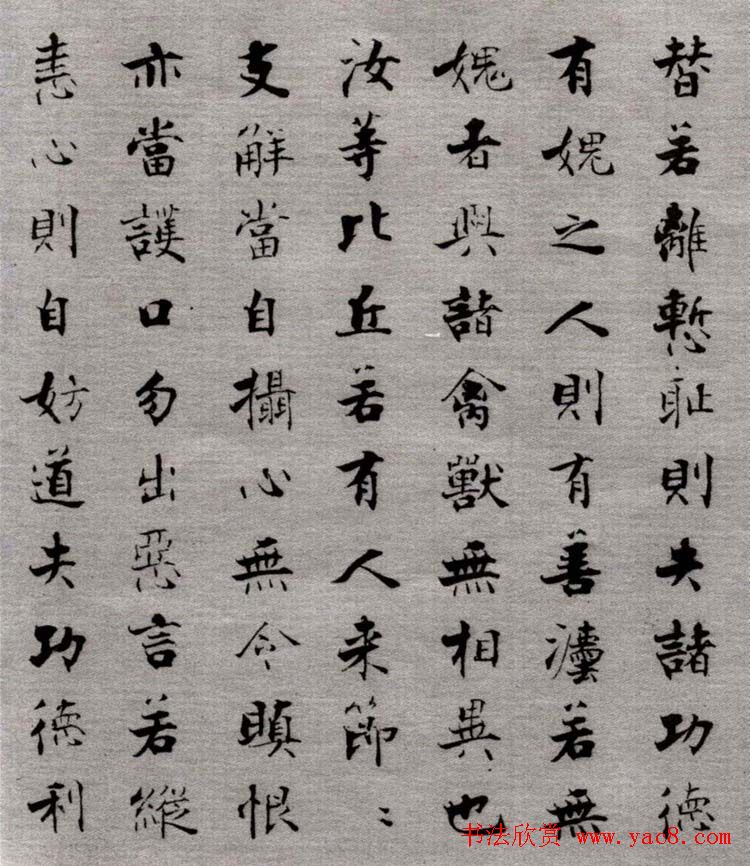 替若離慙耻則失諸功德
有媿之人則有善灋若無
媿者與諸禽獸無相異也
汝等比丘若有人来節〻
支解當自攝心無令瞋恨
亦當護口勿出惡言若縱
恚心則自妨道失功德利
书法欣赏 www.yac8.com